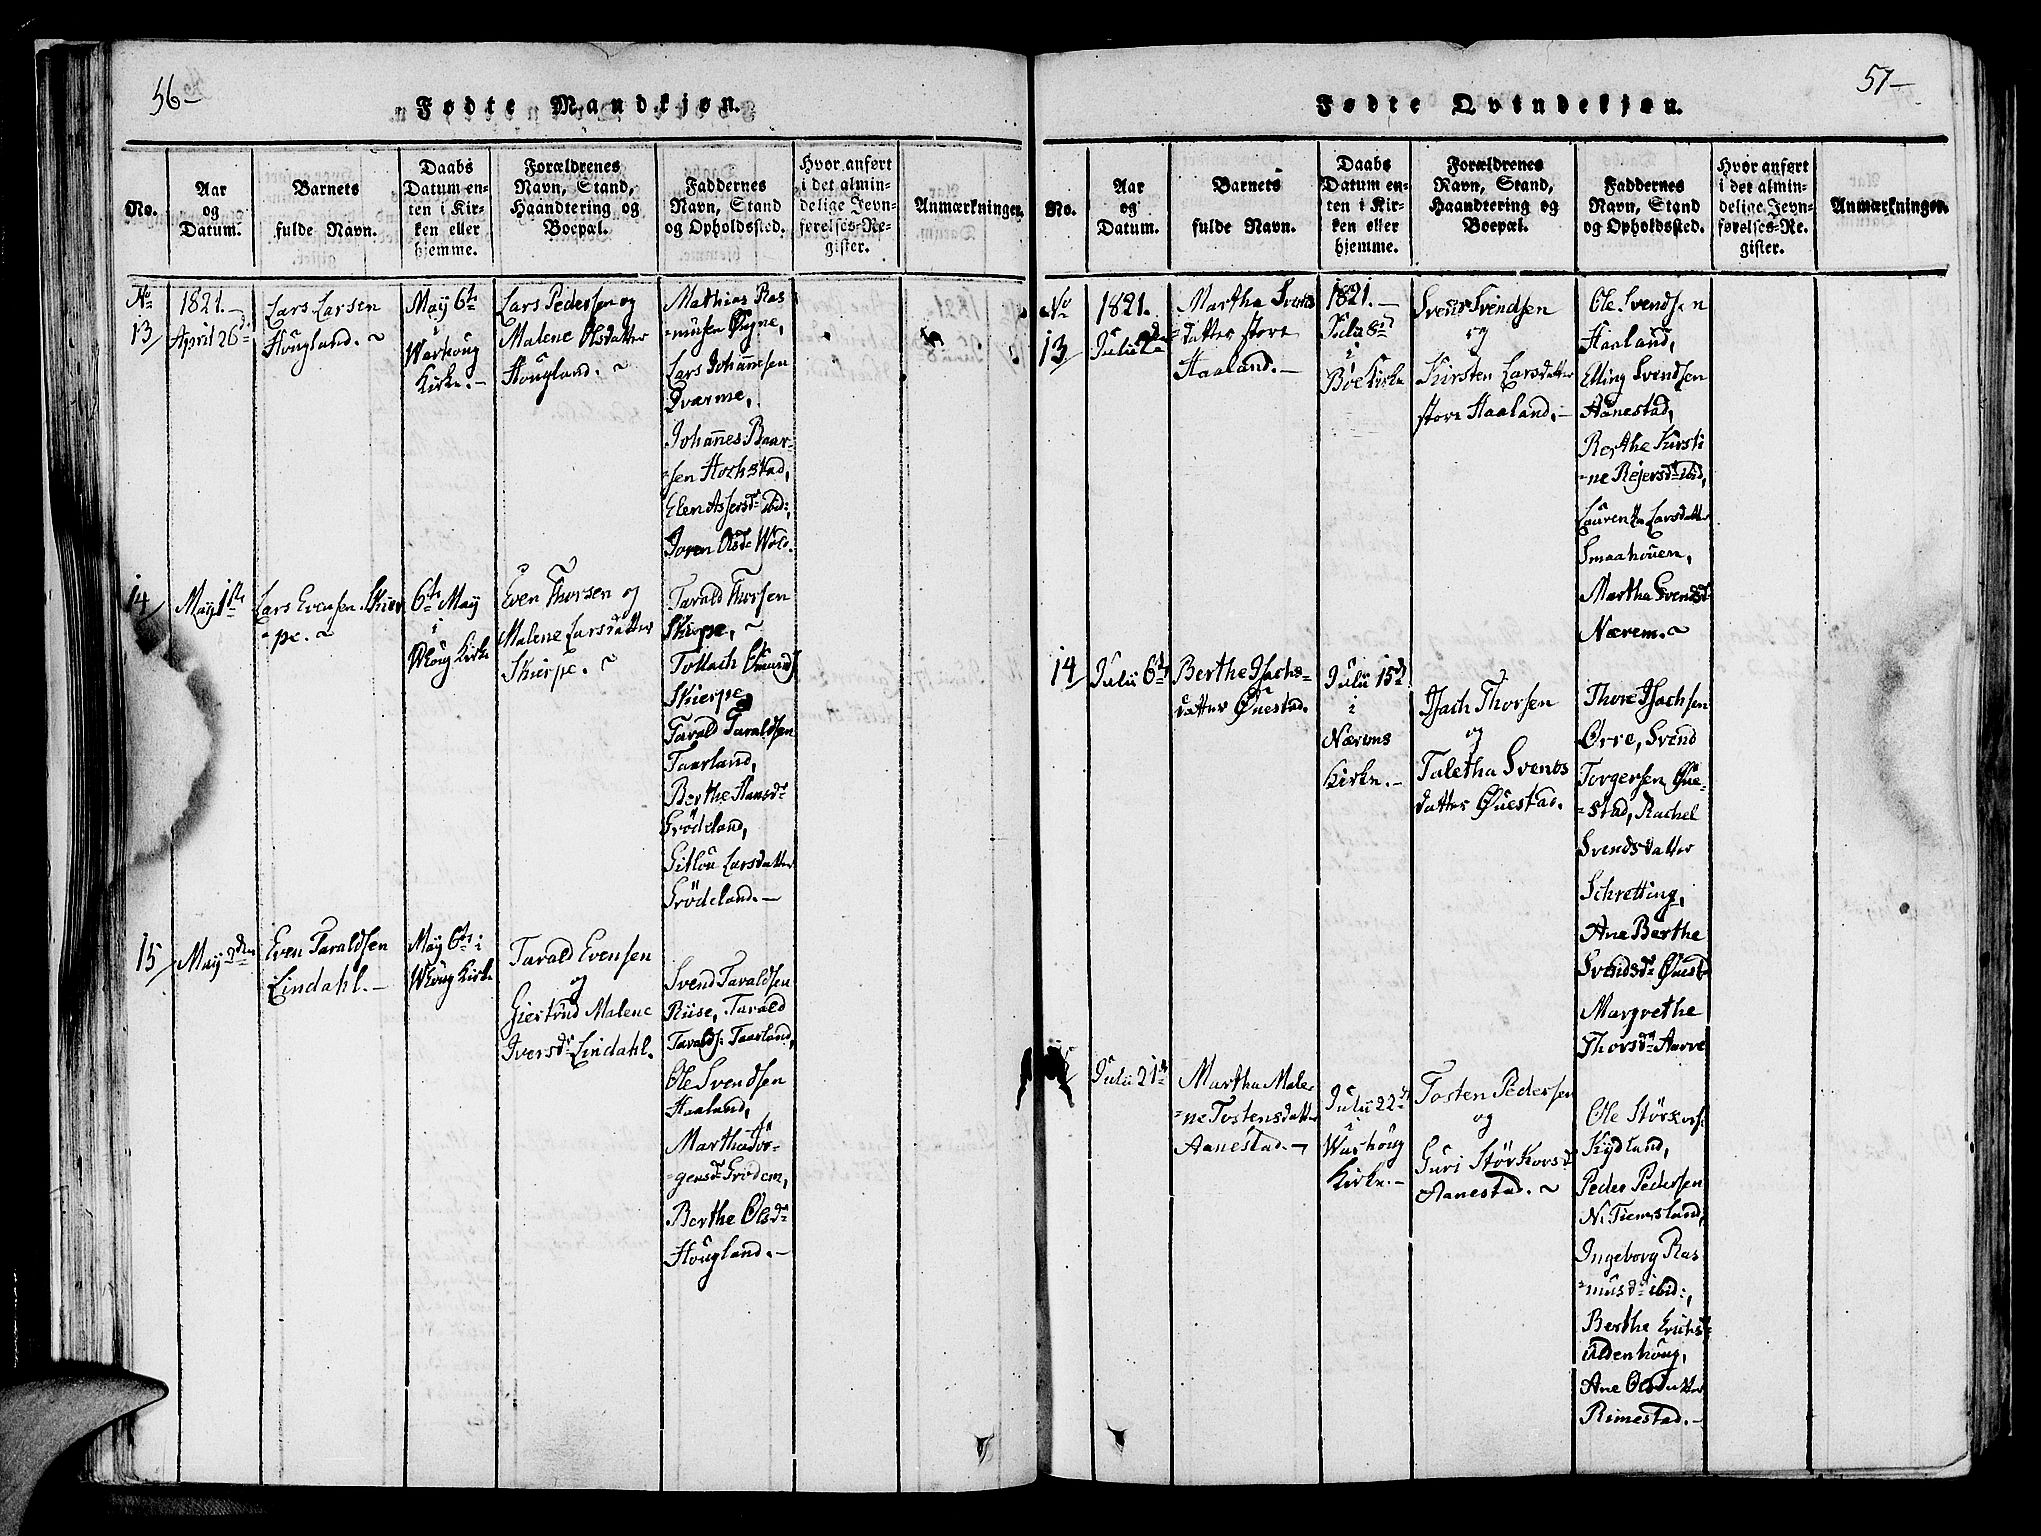 56-
Fødte Mandkjøn.
No.
Aar
og
Datum.
Barnets
fulde Navn.
Daabs
Datum en-
ten i Kir-
ken eller
hjemme.
Forældrenes
Navn, Stand,
Haandtering og
Boepæl.
Faddernes
Navn, Stand
og Opholdssted.
Hvor anført
i det almin-
delige Jevn-
førelses-Re-
gister.
Anmærkninger.
No
13
1821.-
April 26d
Lars Larsen
Hougland. ~
May 6te
i
Warhoug
Kirke.-
Lars Pedersen og
Malene Olsdatter
Hougland. ~
Mathias Ras
musen Øgne,
Lars Johannesen
Dværme,
Johannes Baar-
sen Hochstad,
Elen Assersdr ibid:,
Joren Olsdr Wold.
14
May 1ste
Lars Evensen Skier
pe. ~
6te May
i
Whoug Kirke
Even Thorsen og
Malene Larsdatter
Skierpe. ~
Tarald Thorsen
Skierpe, ~
Tollach Omunds
Skierpe,
Tarald Taraldsen
Taarland,
Berthe Hansdr
Grödeland,
Gitlou Larsdatter
Grödeland.-
15
May 2den
Even Taraldsen
Lindahl.-
May 6te i
Whoug Kirke
Tarald Evensen
og
Giertrud Malene
Iversdr Lindahl.
Svend Taraldsen
Riise, Tarald
Taralds: Taarland,
Ole Svendsen
Haaland,
Martha Jör-
gensdr Grödem,
Berthe Olsdr
Hougland.-
57-
Fødte Qvindekjøn.
No.
Aar
og
Datum.
Barnets
fulde Navn.
Daabs
Datum en-
ten i Kir-
ken eller
hjemme.
Forældrenes
Navn, Stand,
Haandtering og
Boepæl.
Faddernes
Navn, Stand
og Opholdssted.
Hvor anført
i det almin-
delige Jevn-
førelses-Re-
gister.
Anmærkninger.
No
13
1821.
Julii 2d
Martha Svends
datter store
Haaland.-
1821.-
Julii 8d
i
Boe Kirke
Svend Svendsen
og
Kirsten Larsdatter
store Haaland.-
Ole Svendsen
Haaland,
Elling Svendsen
Aanestad,
Berthe Kirsti
ne Rejersdr ibid,
Laurentha Larsdatter
Smaahouen,
Martha Svendsdr
Nærem. ~
14
Julii 6te
Berthe Isachs-
datter Øuestad.
Julii 15d
i
Nærems
Kirke.-
Isach Thorsen
og
Taletha Svends
datter Øuestad.
Thore Isachsen
Orre, Svend
Torgersen Øue-
stad, Rachel
Svendsdatter
Schretting,
Ane Berthe
Svendsdr Øuest
Margrethe
Thorsdr Aarre
Julii 21d
Martha Male
ne Tostensdatter
Aanestad.-
Julii 22d
i
Warhoug
Kirke.-
Tosten Pedersen
og
Guri Störkorsd
Aanestad. ~
Ole Störkors:
Kydland,
Peder Pedersen
N. Tiemsland,
Ingeborg Ras
musdr ibid:,
Berthe Erichsdr
Uldenhoug,
Ane Olsdatter
Rimestad.-